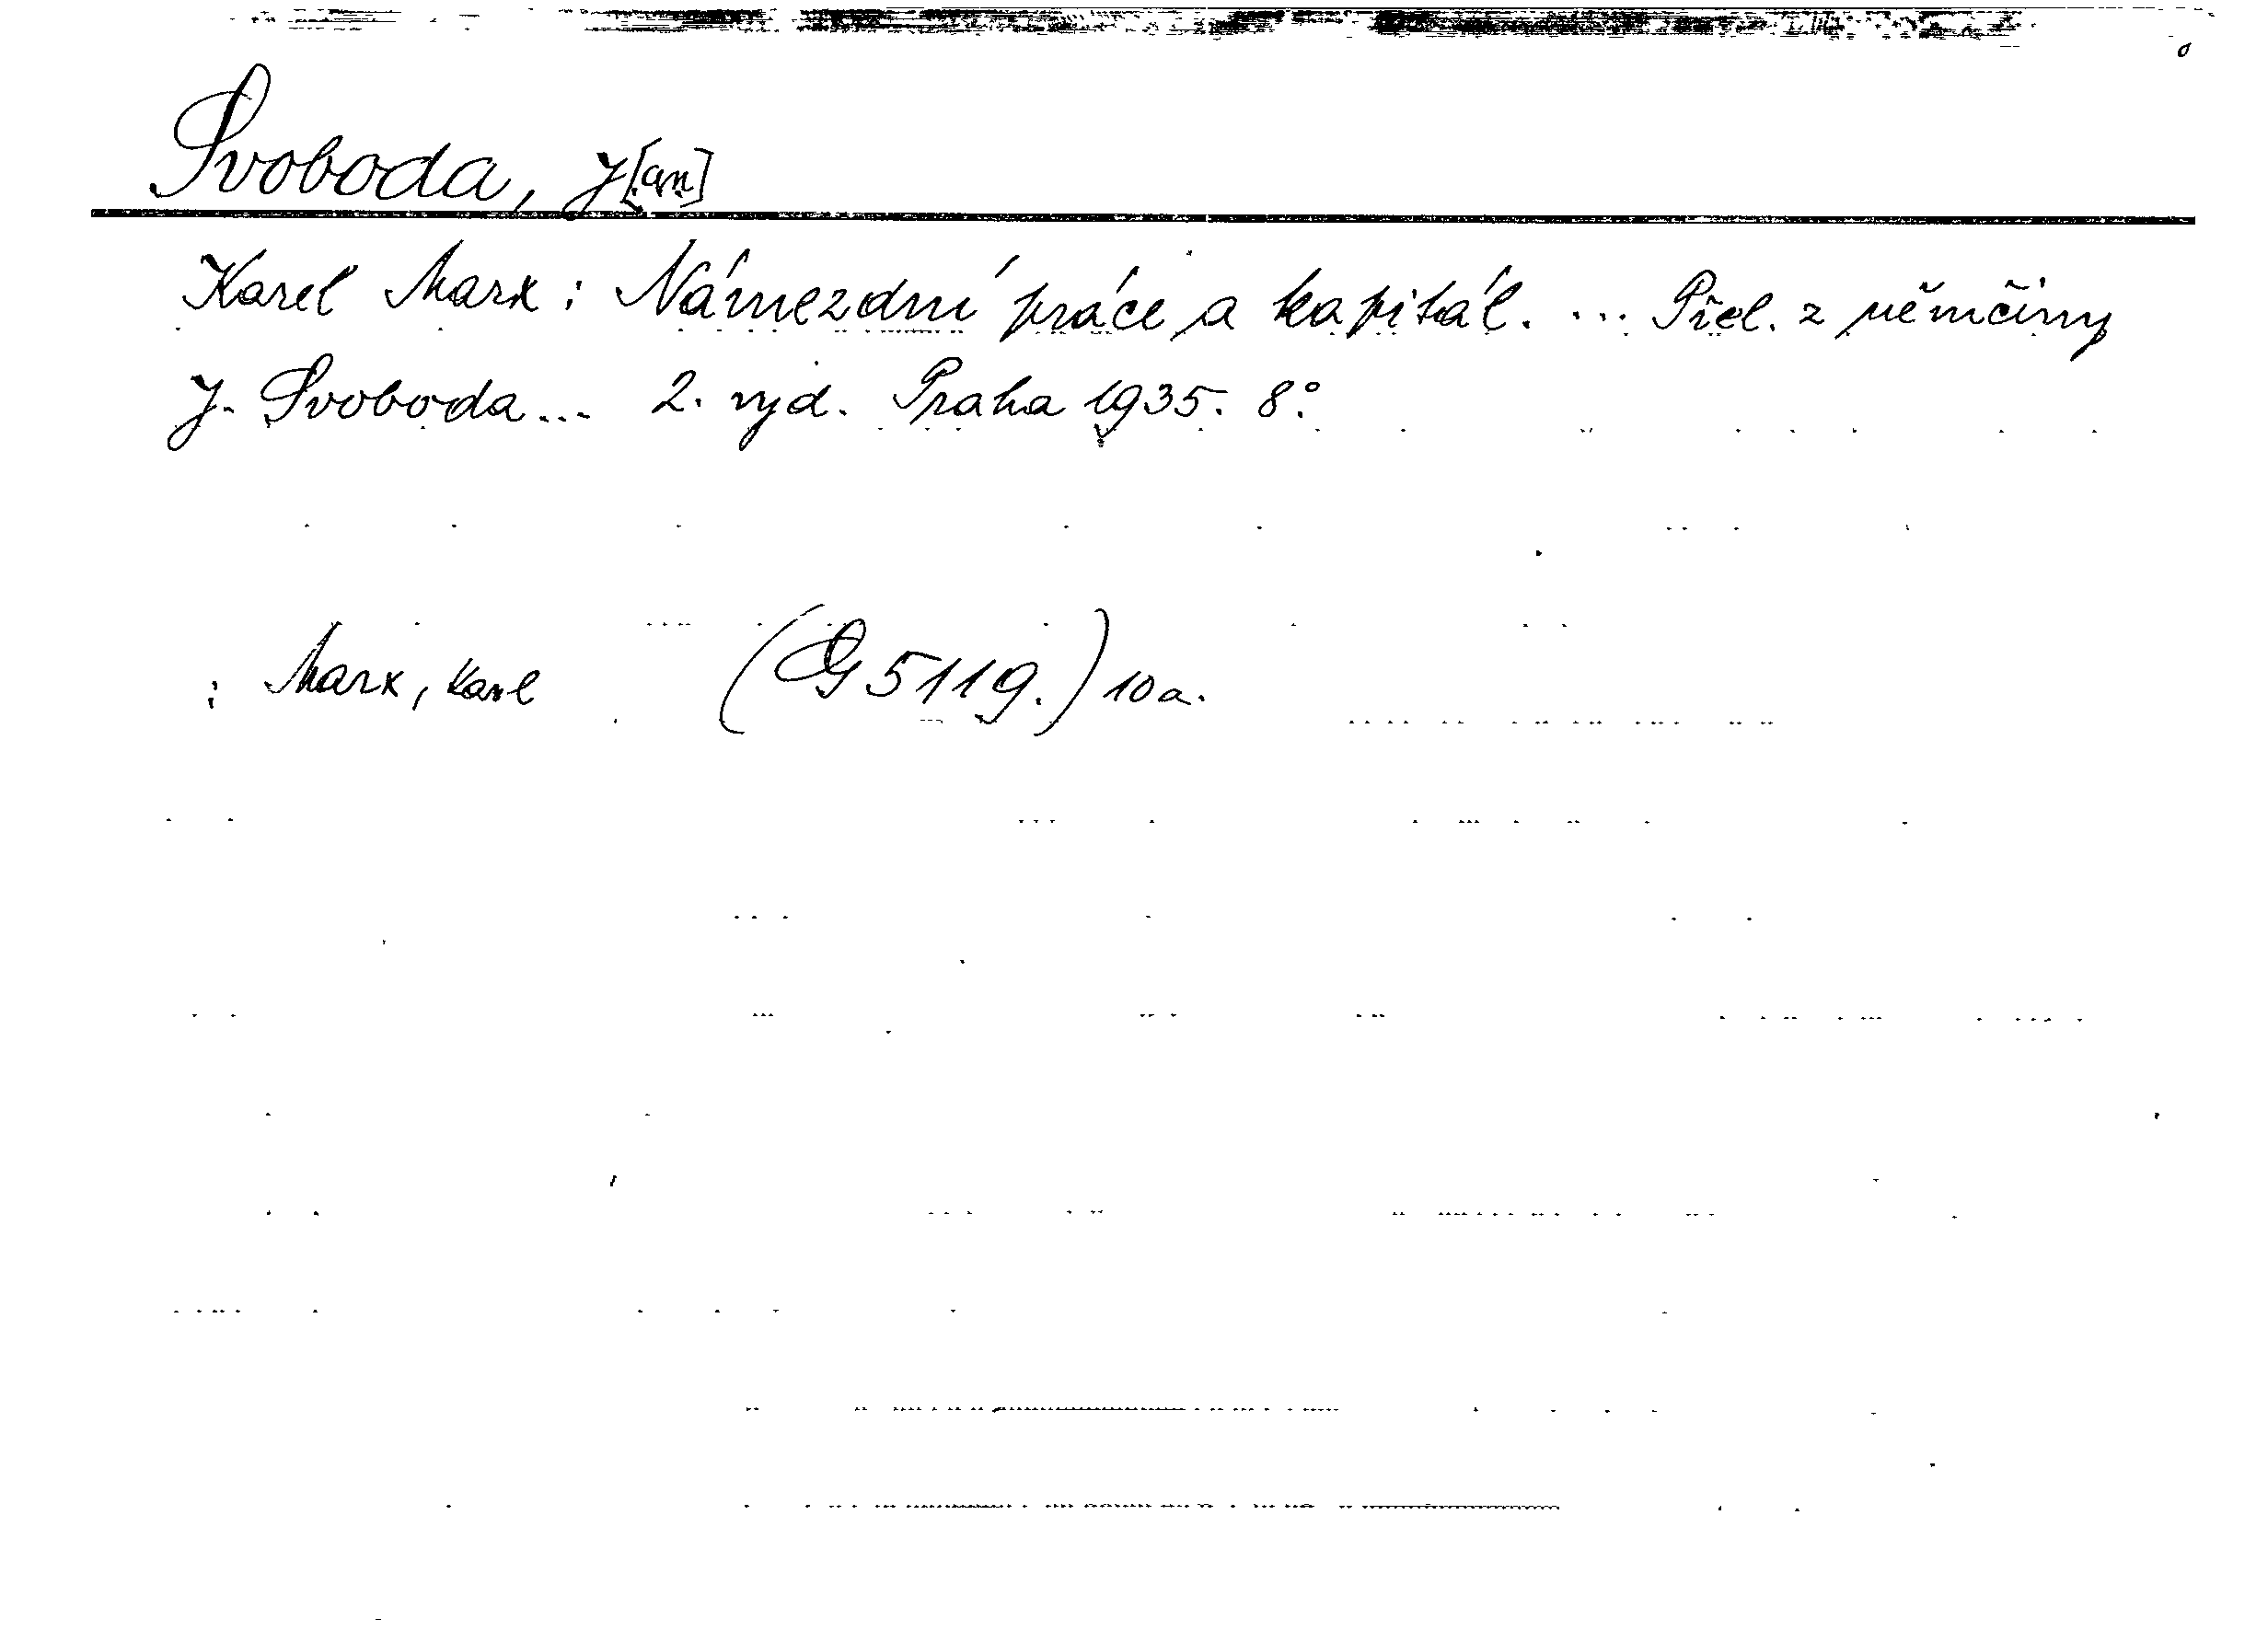 Svoboda, J[an]
Karel Marx: Námezdní práce a kapitál. ... Přel. z němčiny
J. Svoboda... 2. vyd. Praha 1935. 8°.
: Marx, Karel (G 5119.) 10a.